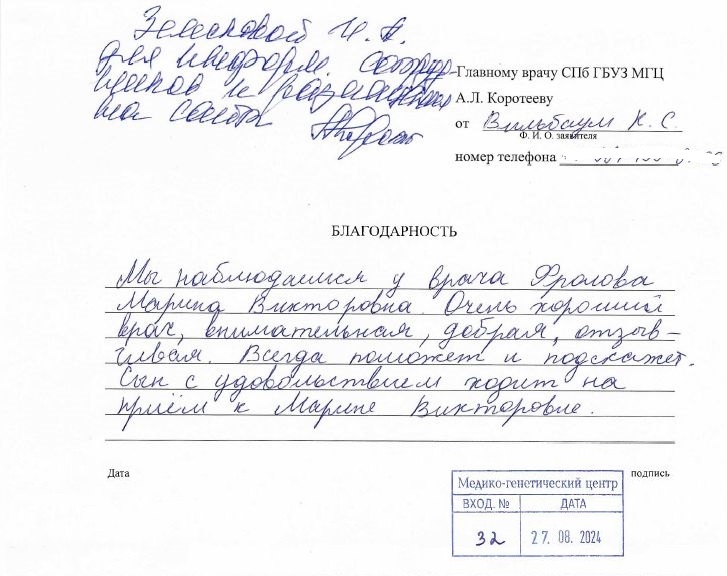 для информ. сотруд-
ников и размещения
на сайте
Главному врачу СПб ГБУЗ МГЦ
А.Л. Коротееву
от Вильбаум К. С.
Ф. И. О. заявителя
номер телефона
БЛАГОДАРНОСТЬ
Мы наблюдаемся у врача Фролова
Марина Викторовна. Очень хороший
врач, внимательная, добрая, отзыв-
чивая. Всегда поможет и подскажет.
Сын с удовольствием ходит на
приём к Марине Викторовне.
Дата
подпись
Медико-генетический центр
ВХОД. № ДАТА
32 27. 08. 2024